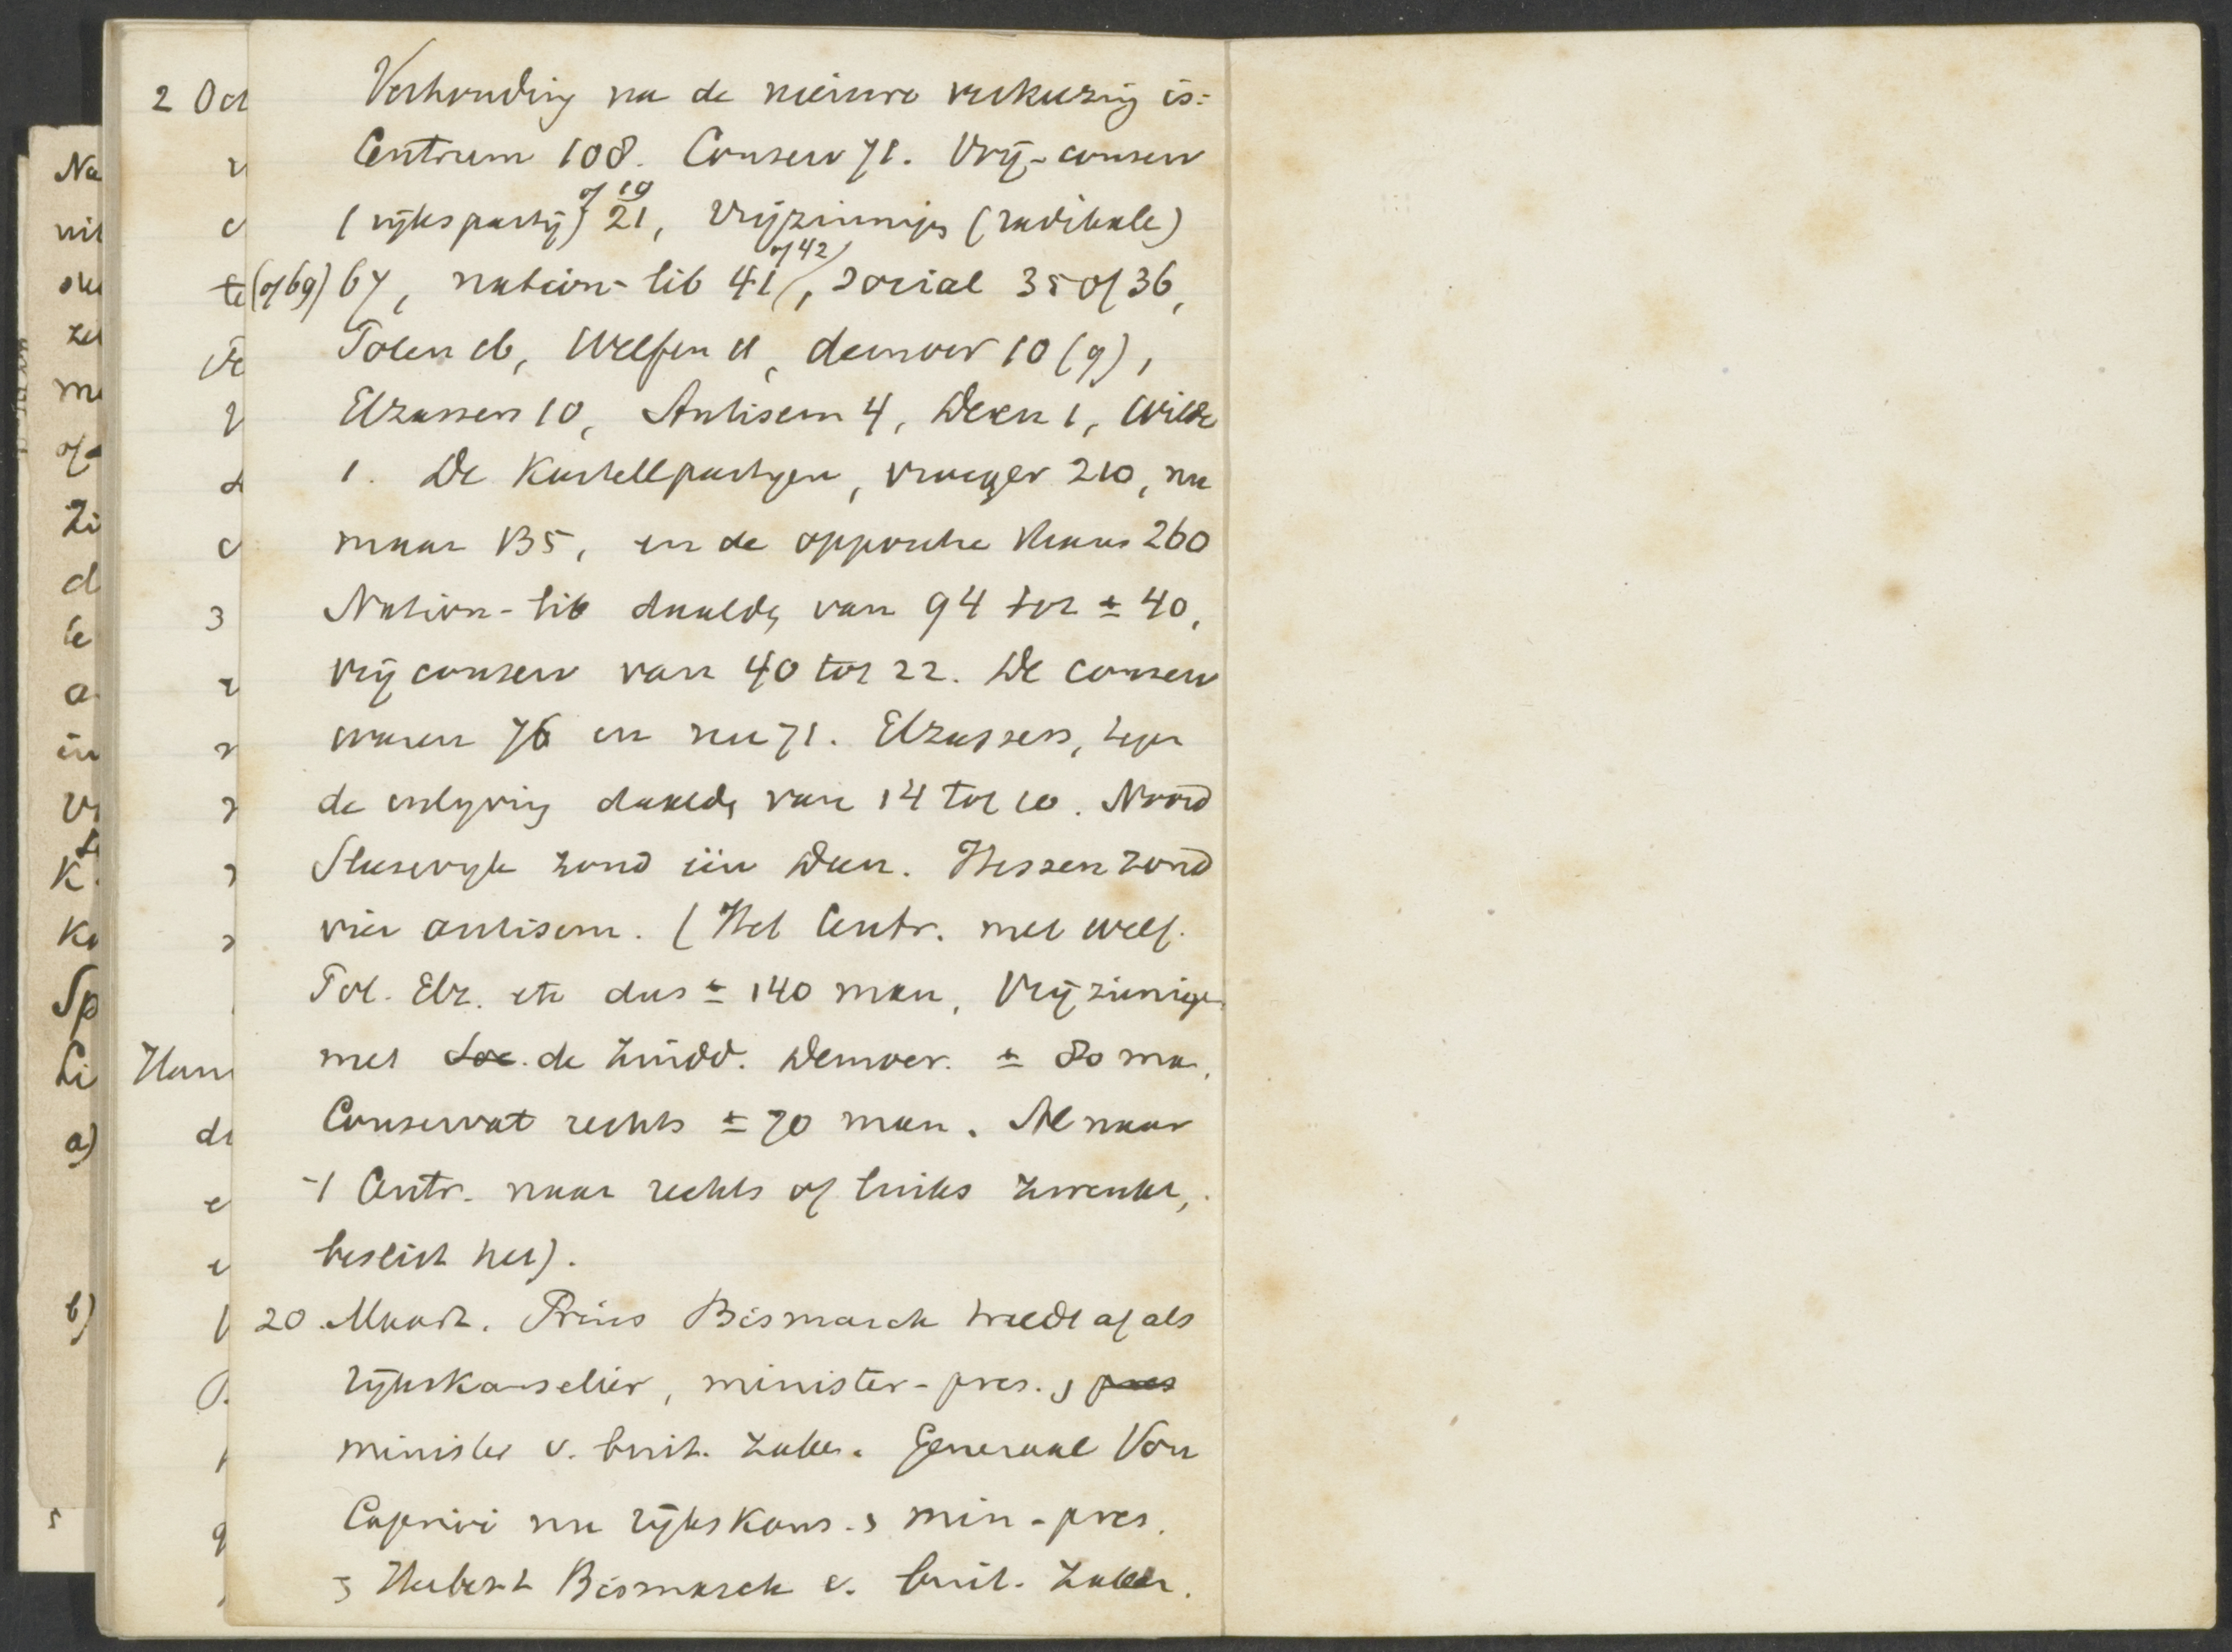 Verhouding na de nieuwe verkiezing is:
Centrum 108. Conserv 71. Vrij-conserv
(rijkspartij) 21, of 19 vrijzinnigen (radikale)
(of 69) 67, nation-lib 41, of 42 social 35 of 36,
Polen 16, Welfen 11, democr 10 (9),
Elzassers 10, Antisem 4, Deen 1, Wilde
1. De Kartellpartijen, vroeger 210, nu
maar 135, en de oppositie thans 260
Nation-lib daalde van 94 tot ± 40,
vrij conserv van 40 tot 22. De conserv
waren 76 en nu 71. Elzassers, tegen
de inlijving daalde van 14 tot 10. Noord
Sleeswijk zond één Deen. Hessen zond
vier antisem. (Het Centr. met Welf.
Pol. Elz. etc dus ± 140 man, Vrijzinnigen
met soc. de Zuidd. Democr. ± 80 man,
Conservat rechts ± 70 man. Al naar
't Centr. naar rechts of links zwenkt,
beslist het).
20 Maart. Prins Bismarck treedt af als
rijkskanselier, minister-pres. & pres
minister v. buit. zaken. Generaal Von
Caprivi nu rijkskans. & min-pres.
& Herbert Bismarck v. buit. zaken.
2 Oct
Ham
Na
Sp
Li
a)
b)